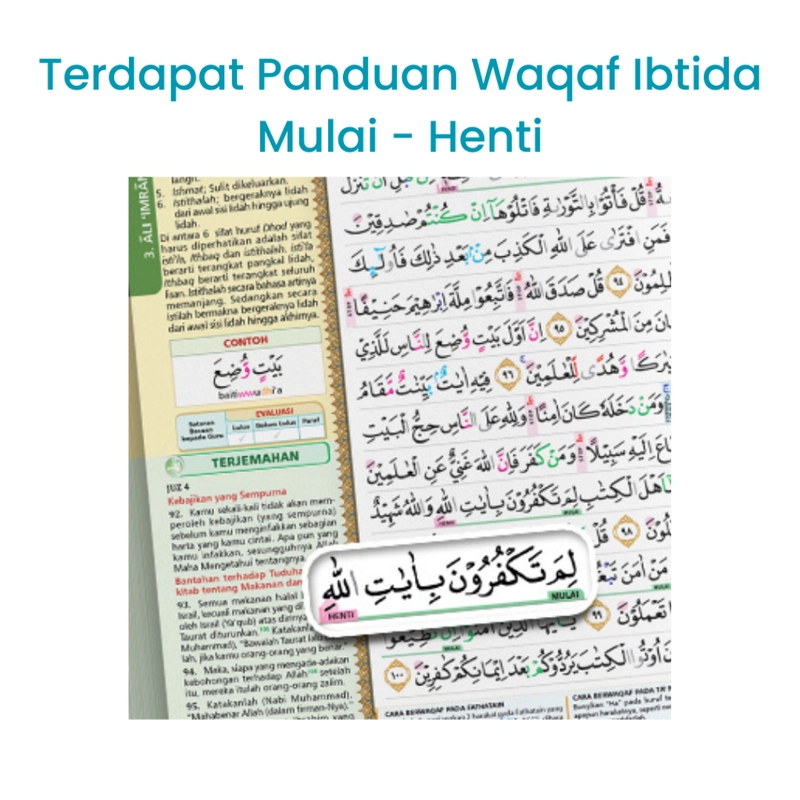 Terdapat Panduan Waqaf Ibtida
Mulai - Henti
3. ĀLI 'IMRĀN
langit.
5. Ishmat; Sulit dikeluarkan.
6. Istithalah; bergeraknya lidah
dari awal sisi lidah hingga ujung
lidah.
Di antara 6 sifat huruf Dhad yang
harus diperhatikan adalah sifat
isti'la, ithbaq dan istithalah. isti'la
berarti terangkat pangkal lidah,
ithbaq berarti terangkat seluruh
lisan. Istithalah secara bahasa artinya
memanjang. Sedangkan secara
istilah bermakna bergeraknya lidah
dari awal sisi lidah hingga akhirnya.
CONTOH
بَيْتٍ وُّضِعَ
baitiwwudhi'a
EVALUASI
Setoran Bacaan kepada Guru
Lulus
Belum Lulus
Paraf
TERJEMAHAN
JUZ 4
Kebajikan yang Sempurna
92. Kamu sekali-kali tidak akan mem-
peroleh kebajikan (yang sempurna)
sebelum kamu menginfakkan sebagian
harta yang kamu cintai. Apa pun yang
kamu infakkan, sesungguhnya Allah
Maha Mengetahui tentangnya.
Bantahan terhadap Tuduha
kitab tentang Makanan dan
93. Semua makanan halal
Israil, kecuali makanan yang di
oleh Israil (Ya'qub) atas dirinya
Taurat diturunkan. Katakanla
Muhammad), "Bawalah Taurat lalu
lah, jika kamu orang-orang yang benar.
94. Maka, siapa yang mengada-adakan
kebohongan terhadap Allah setelah
itu, mereka itulah orang-orang zalim.
95. Katakanlah (Nabi Muhammad),
"Mahabenar Allah (dalam firman-Nya).
قُلْ فَأْتُوْا بِالتَّوْرٰىةِ فَاتْلُوْهَآ اِنْ كُنْتُمْ صٰدِقِيْنَ
فَمَنِ افْتَرٰى عَلَى اللّٰهِ الْكَذِبَ مِنْۢ بَعْدِ ذٰلِكَ فَاُولٰۤىِٕكَ
٩٤ قُلْ صَدَقَ اللّٰهُ فَاتَّبِعُوْا مِلَّةَ اِبْرٰهِيْمَ حَنِيْفًا
مِنَ الْمُشْرِكِيْنَ ٩٥ اِنَّ اَوَّلَ بَيْتٍ وُّضِعَ لِلنَّاسِ لَلَّذِيْ
وَّهُدًى لِّلْعٰلَمِيْنَ ٩٦ فِيْهِ اٰيٰتٌۢ بَيِّنٰتٌ مَّقَامُ
وَمَنْ دَخَلَهٗ كَانَ اٰمِنًا وَلِلّٰهِ عَلَى النَّاسِ حِجُّ الْبَيْتِ
اِلَيْهِ سَبِيْلًا وَمَنْ كَفَرَ فَاِنَّ اللّٰهَ غَنِيٌّ عَنِ الْعٰلَمِيْنَ
الْكِتٰبِ لِمَ تَكْفُرُوْنَ بِاٰيٰتِ اللّٰهِ وَاللّٰهُ شَهِيْدٌ
HENTI
MULAI
٩٨
لِمَ تَكْفُرُوْنَ بِاٰيٰتِ اللّٰهِ
HENTI
MULAI
٩٩
اُوْتُوا الْكِتٰبَ يَرُدُّوْكُمْ بَعْدَ اِيْمَانِكُمْ كٰفِرِيْنَ ١٠٠
CARA BERWAQAF PADA FATHATAIN
CARA BERWAQAF PADA TA'